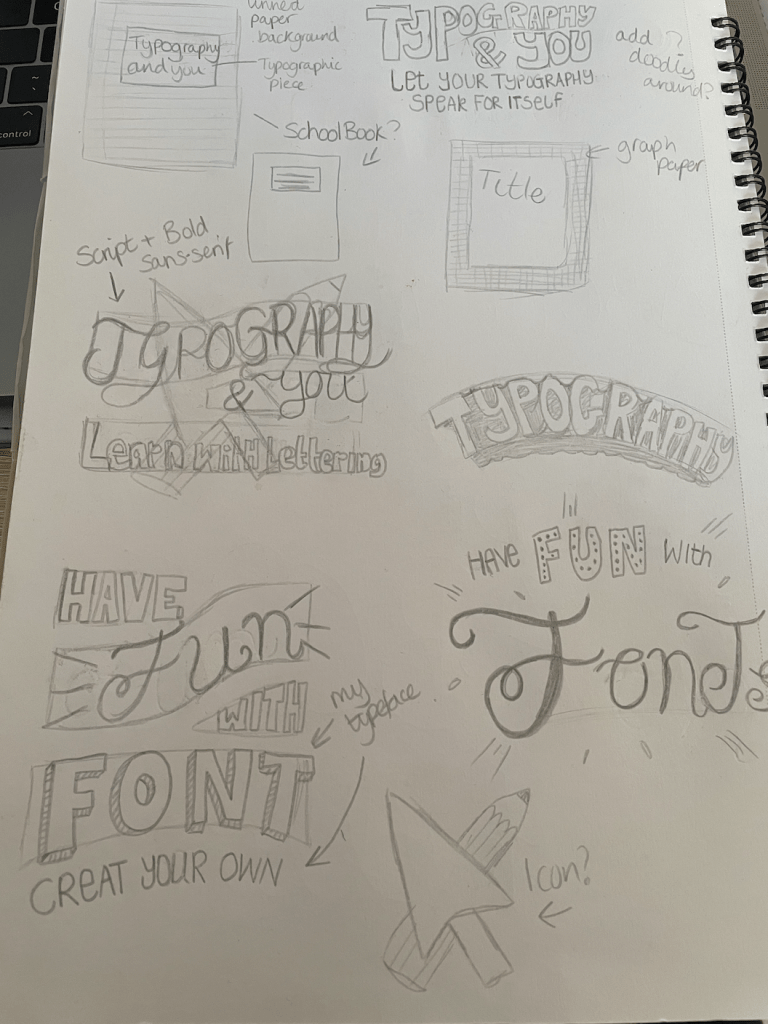 paper
background
Typography
and you
Typographic
piece
TYPOGRAPHY
& YOU
LET YOUR TYPOGRAPHY
SPEAK FOR ITSELF
add ?
doodles
around?
School Book?
graph
paper
Title
Script + Bold
sans-serif
TYPOGRAPHY
& you
Learn with Lettering
TYPOGRAPHY
HAVE FUN with
Fonts
HAVE
Fun
WITH
my
typeface
FONT
CREAT YOUR OWN
Icon?
control